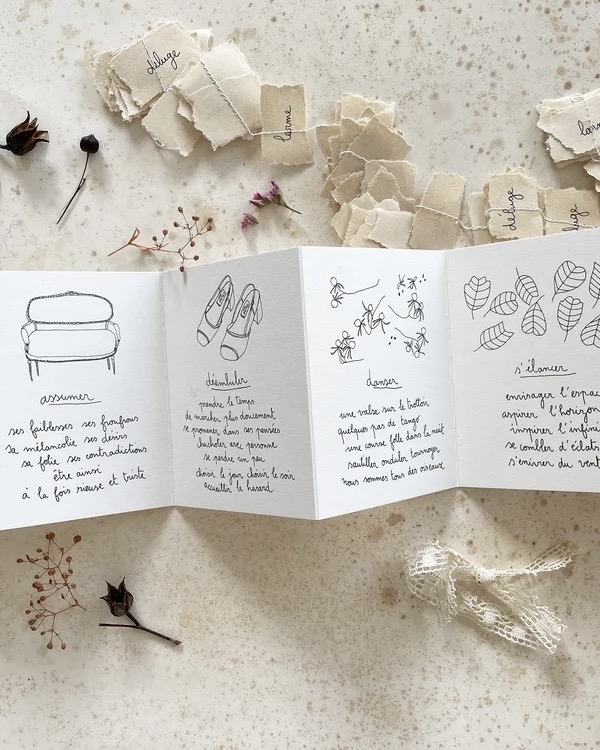 déluge
larme
déluge
assumer
ses faiblesses ses froufrous
sa mélancolie ses désirs
sa folie ses contradictions
être ainsi
à la fois rieuse et triste
déambuler
prendre le temps
de marcher plus doucement
se promener dans ses pensées
chuchoter avec personne
se perdre un peu
choisir le jour, choisir le soir
accueillir le hasard
danser
une valse sur le trottoir
quelques pas de tango
une course folle dans la nuit
sautiller onduler tournoyer
nous sommes tous des oiseaux
s'élancer
envisager l'espac
aspirer l'horizon
inspirer l'infini
se combler d'éclats
s'enivrer du vent